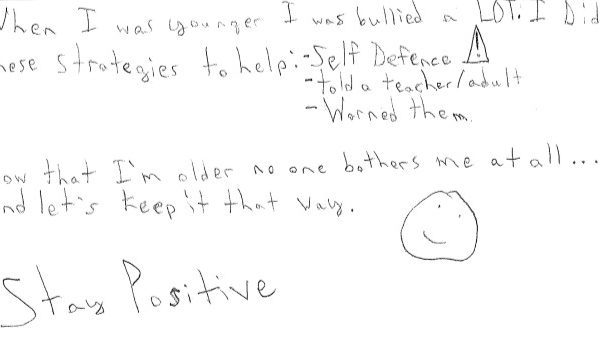 When I was younger I was bullied a LOT. I Did
hese strategies to help:-Self Defence
-told a teacher/adult
-Warned them.
ow that I'm older no one bothers me at all...
nd let's keep it that way.
Stay Positive